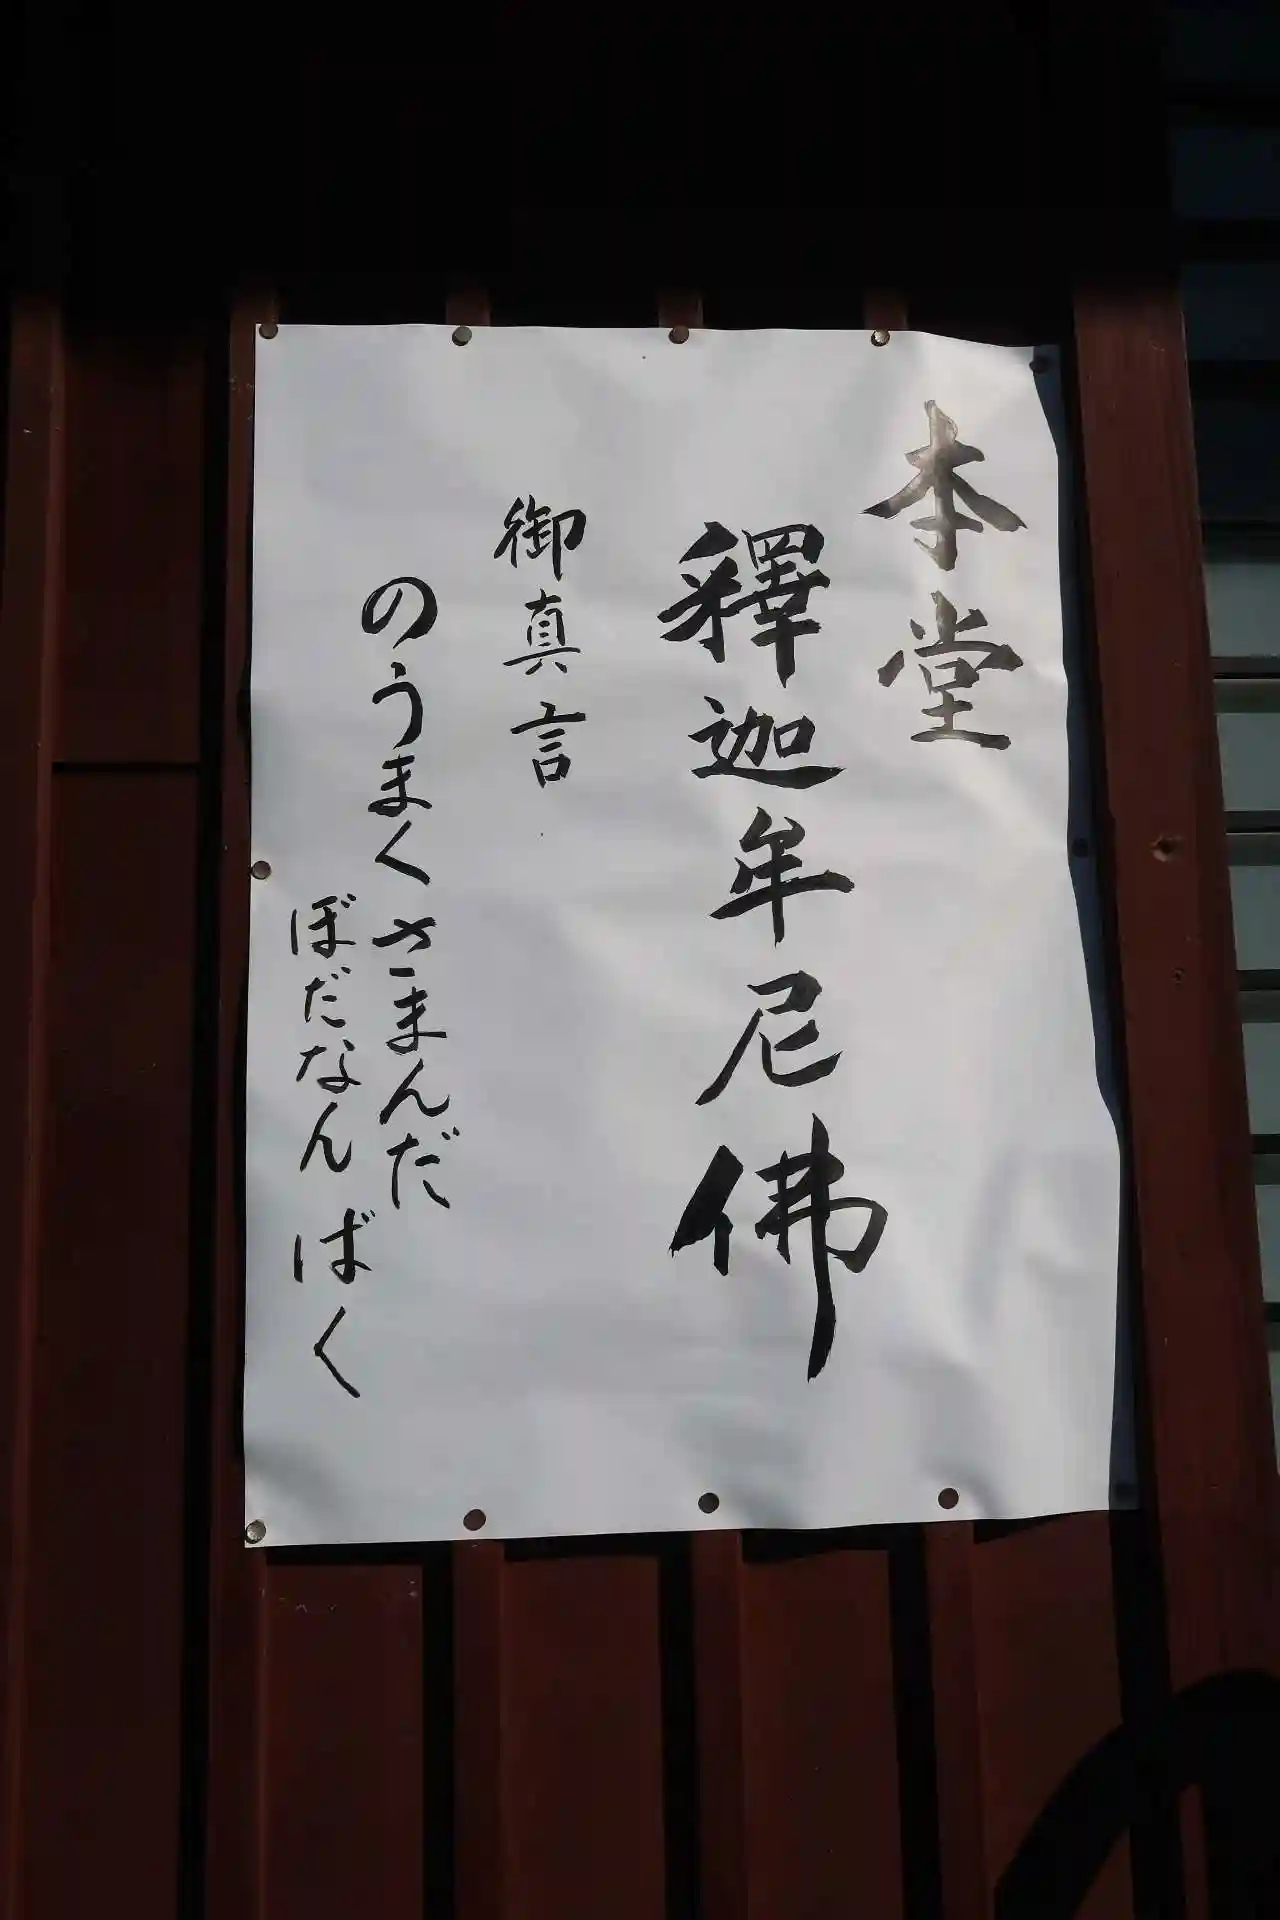 本堂
釋迦牟尼佛
御真言
のうまく さまんだ
ぼだなん ばく